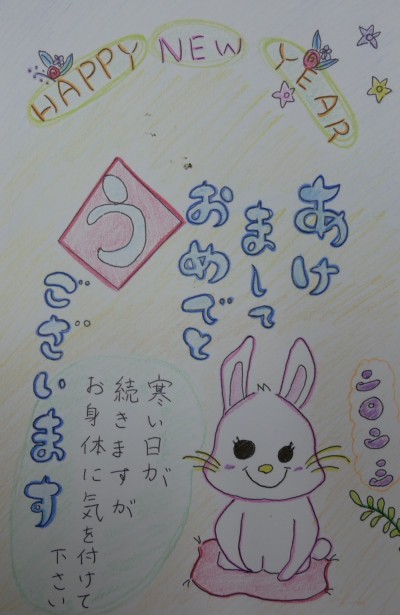 HAPPY NEW YEAR
あけ
まして
おめでと
う
ございます
2023
寒い日が
続きますが
お身体に気を付けて
下さい